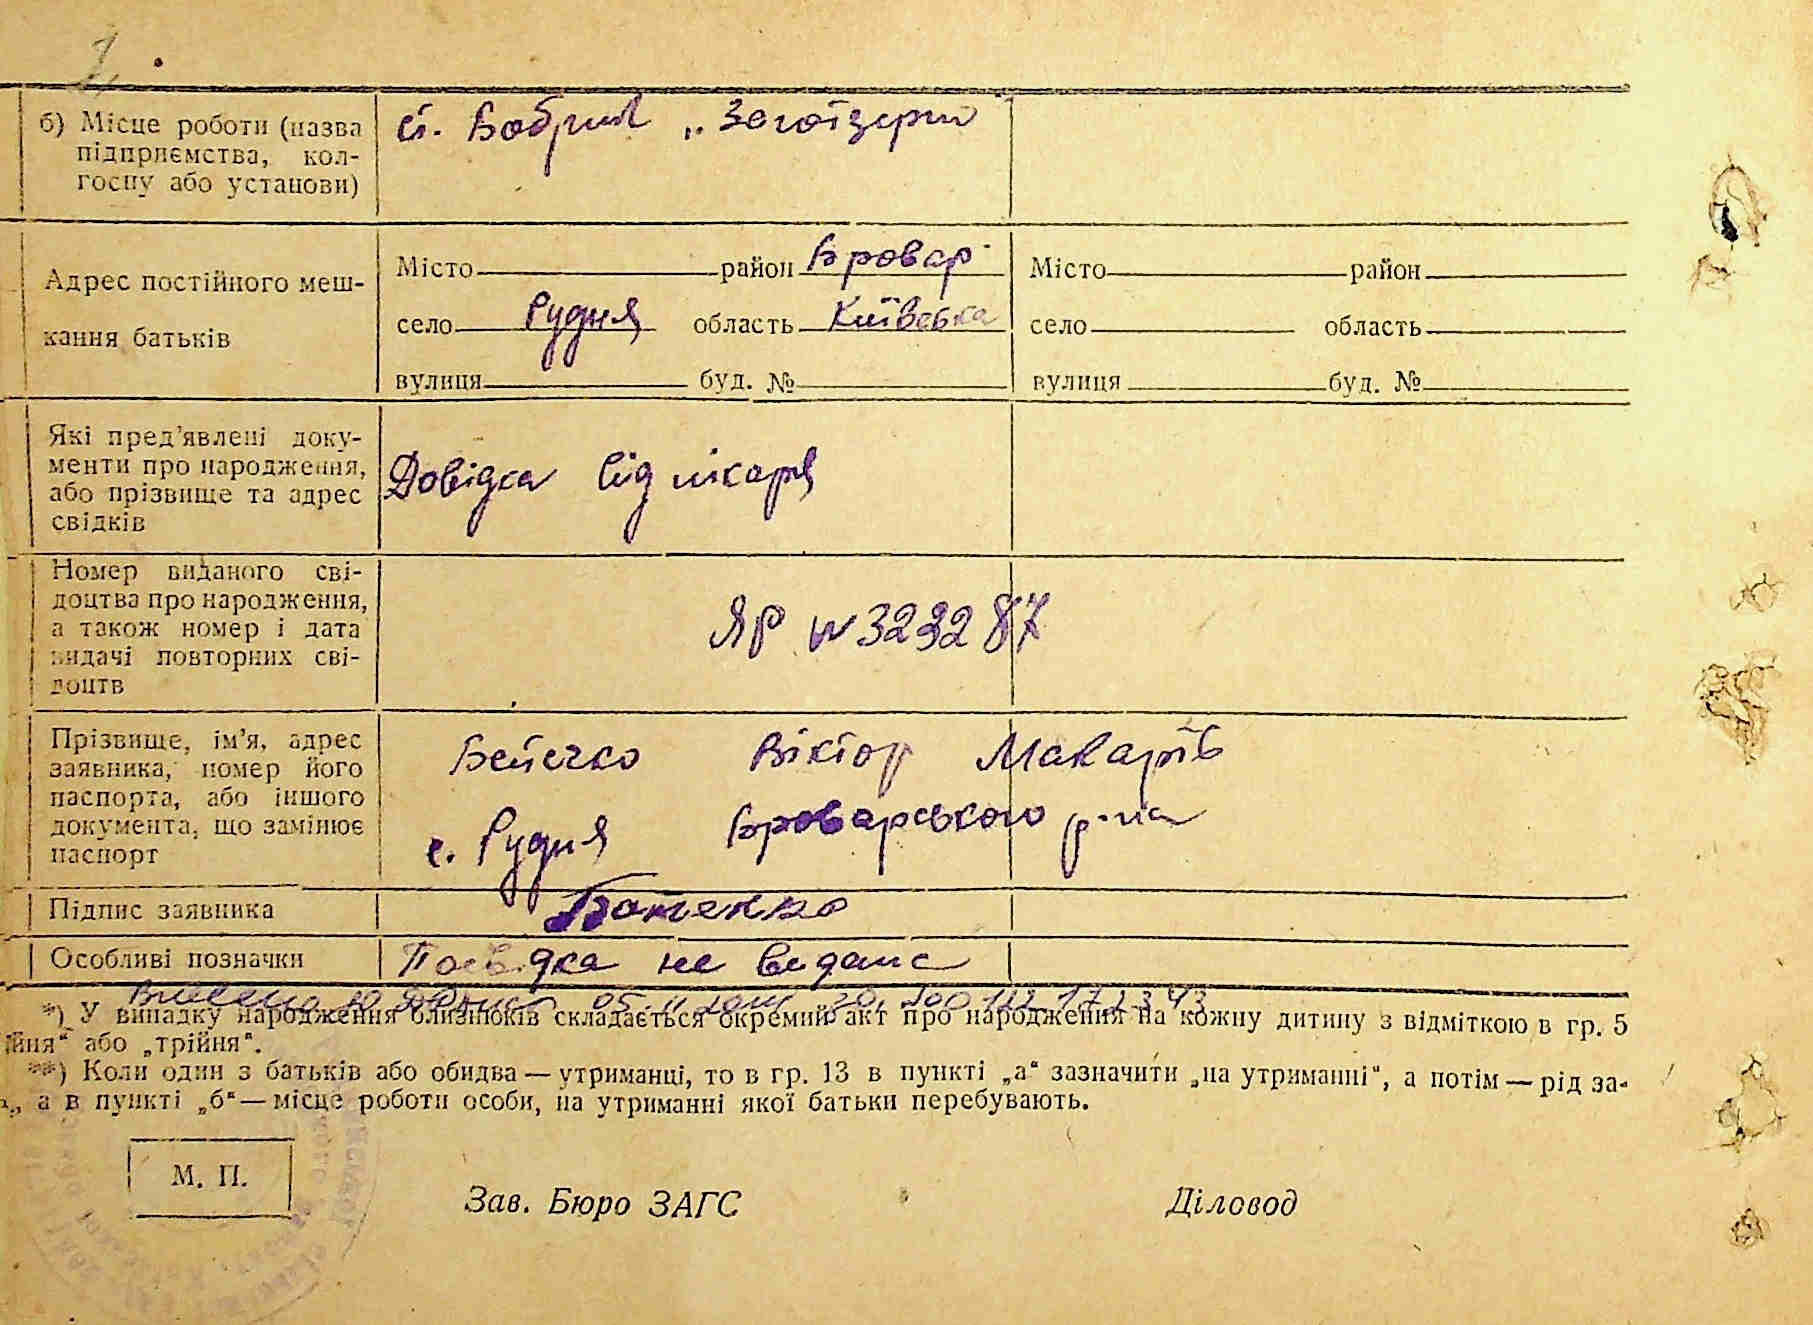 б) Місце роботи (назва
підприємства, кол-
госпу або установи)
ст. Бобрик „Заготзерно
Адрес постійного меш-
кання батьків
Місто район Бровар
село Рудня область Київська
вулиця буд. №
Місто район
село область
вулиця буд. №
Які пред'явлені доку-
менти про народження,
або прізвище та адрес
свідків
Довідка від лікаря
Номер виданого сві-
доцтва про народження,
а також номер і дата
видачі повторних сві-
доцтв
ЯР № 323287
Прізвище, ім'я, адрес
заявника, номер його
паспорта, або іншого
документа, що замінює
паспорт
Віктор Макарів
с. Рудня Броварського р-на
Підпис заявника
Особливі позначки
Посвідка не видана
*) У випадку народження близнюків складається окремий акт про народження на кожну дитину з відміткою в гр. 5
йня“ або „трійня“.
**) Коли один з батьків або обидва — утриманці, то в гр. 13 в пункті „а“ зазначити „на утриманні“, а потім — рід за-
а в пункті „б“ — місце роботи особи, на утриманні якої батьки перебувають.
М. П.
Зав. Бюро ЗАГС
Діловод